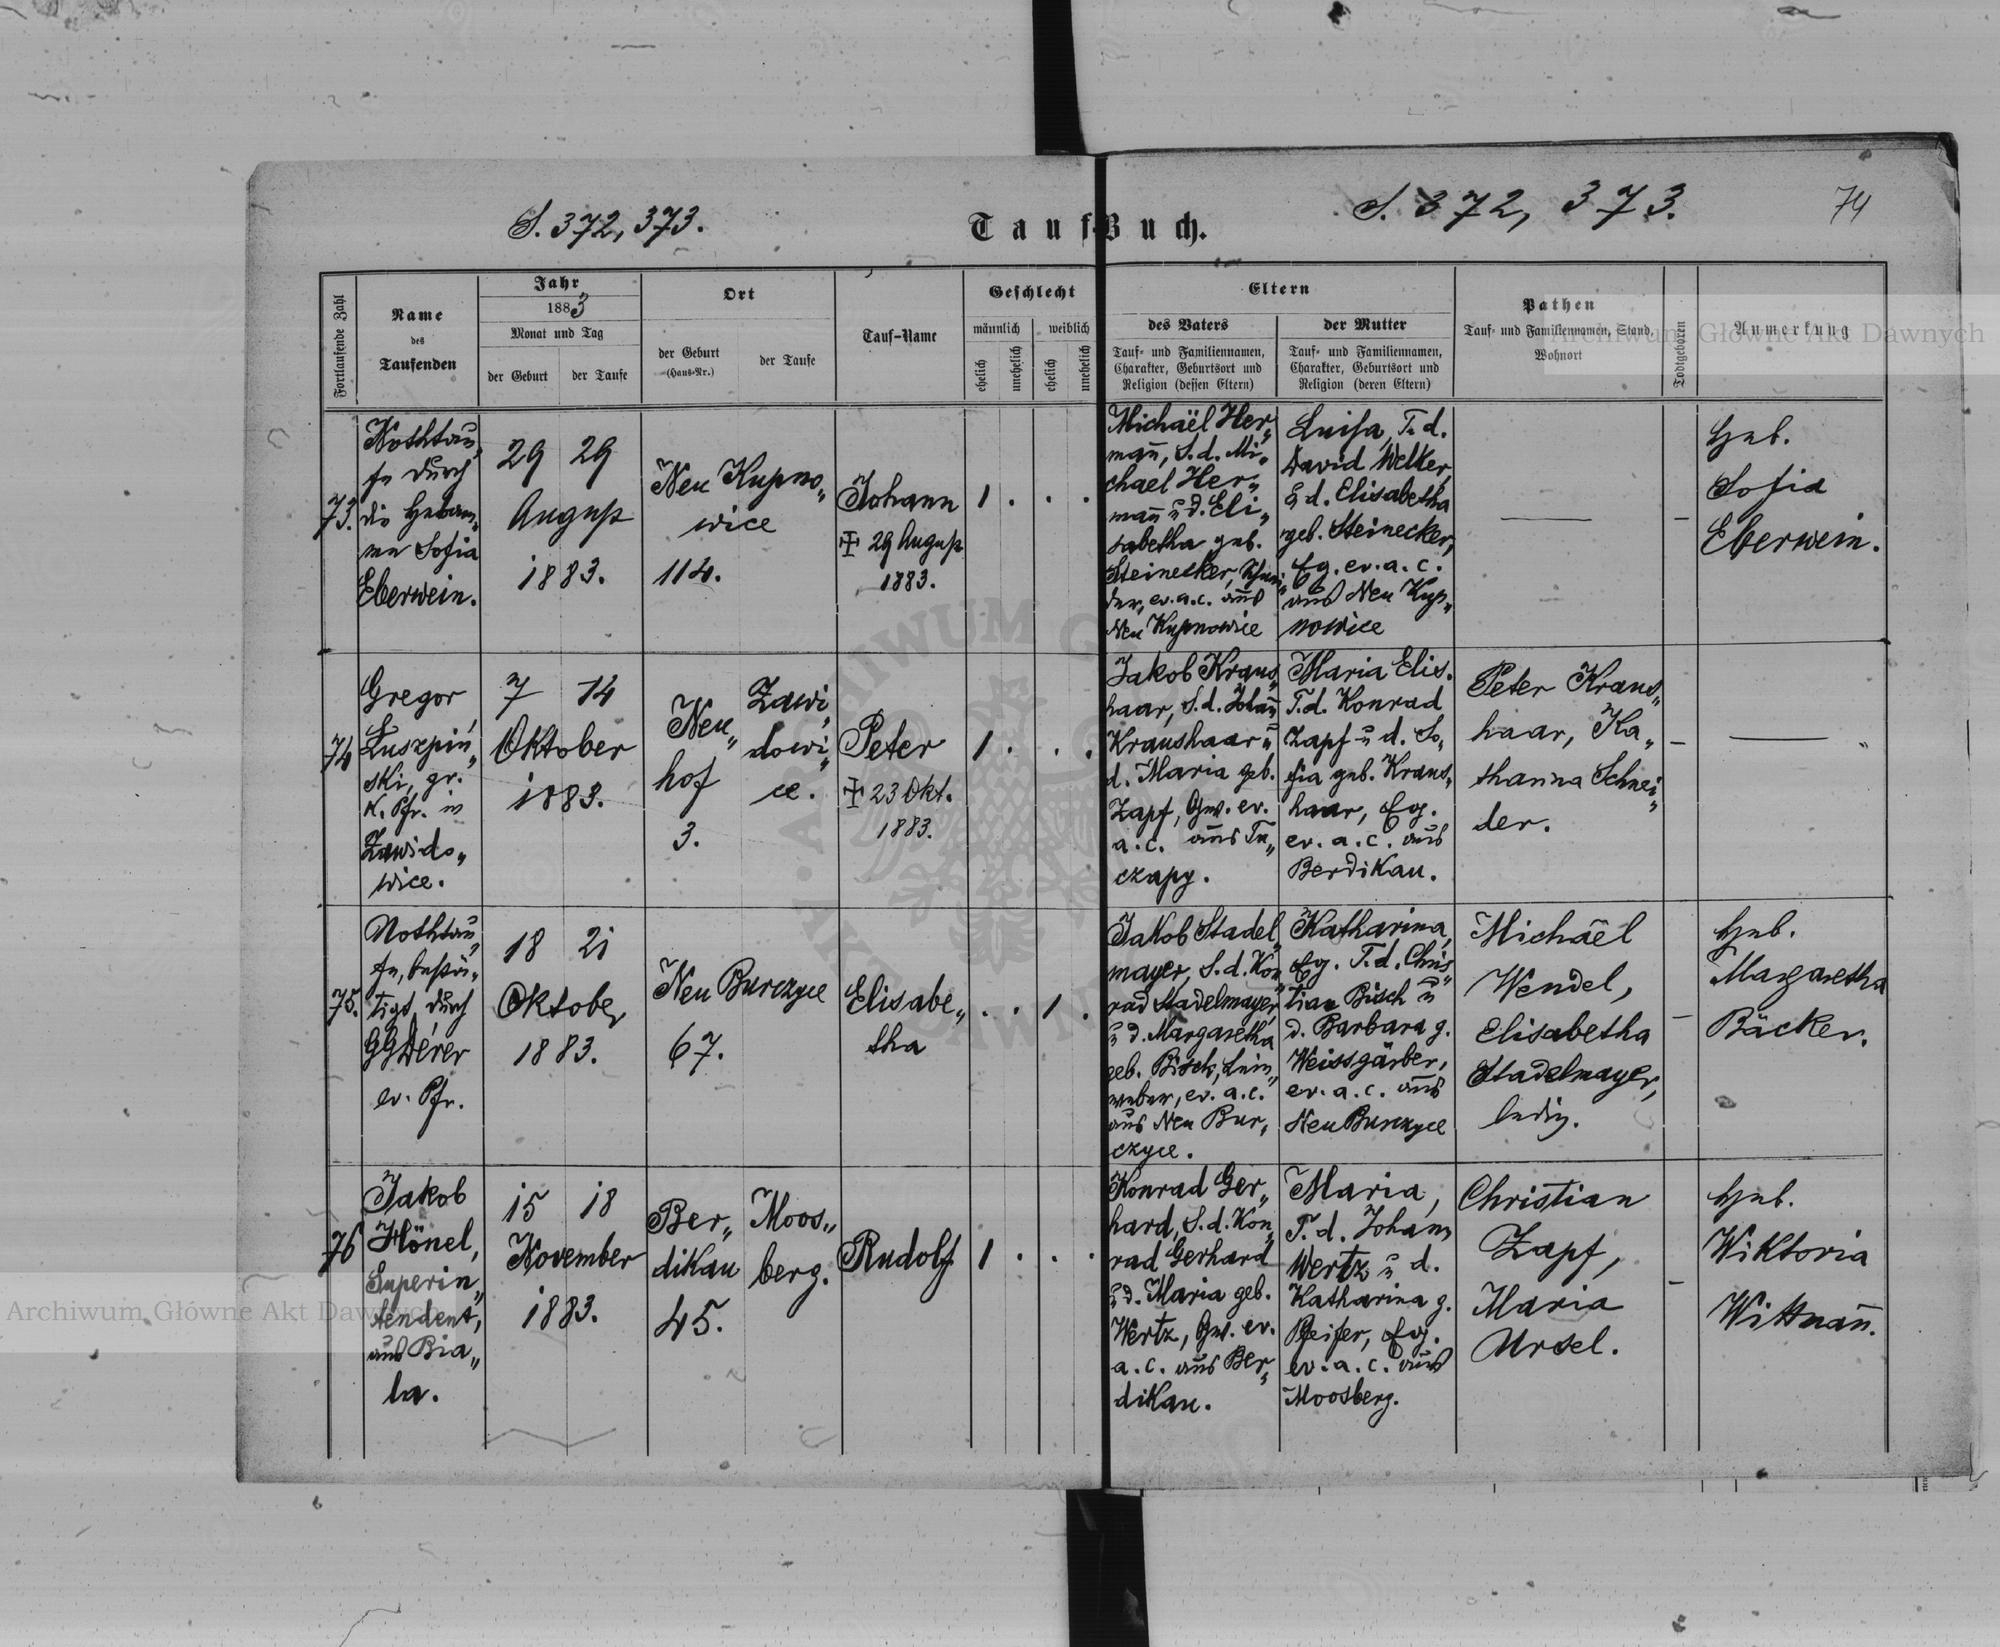 S. 372, 373.
Tauf-Buch.
S. 372, 373.
74
Fortlaufende Zahl
Name
des
Taufenden
Jahr
1883
Monat und Tag
der Geburt
der Taufe
Ort
der Geburt
(Haus-Nr.)
der Taufe
Tauf-Name
Geschlecht
männlich
weiblich
ehelich
unehelich
ehelich
unehelich
Eltern
des Vaters
Tauf- und Familiennamen,
Charakter, Geburtsort und
Religion (dessen Eltern)
der Mutter
Tauf- und Familiennamen,
Charakter, Geburtsort und
Religion (deren Eltern)
Pathen
Tauf- und Familiennamen, Stand,
Wohnort
Todtgeboren
Anmerkung
73.
Nothtau„
fe durch
die Hebam„
me Sofia
Eberwein.
29 29
August
1883.
Neu Kupno„
wice
114.
Johann
29 August
1883.
1 . . .
Michaël Her„
man̄, S. d. Mi„
chael Her„
man̄ u d. Eli„
sabetha geb.
Steinecker, Schnei„
der, ev. a. c. aus
Neu Kupnowice
Luisa, T. d.
David Welker
u d. Elisabetha
geb. Steinecker,
Eg. ev. a. c.
aus Neu Kup„
nowice
—
—
Heb.
Sofia
Eberwein.
74
Gregor
Łuszpiń„
ski, gr.
K. Pfr. in
Zawido„
wice.
7 14
Oktober
1883.
Neu„
hof
3.
Zawi„
dowi„
ce.
Peter
23 Okt.
1883.
1 . . .
Jakob Kraus„
haar, S. d. Johan̄
Kraushaar u
d. Maria geb.
Zapf, Gw. ev.
a. c. aus Tu„
czapy.
Maria Elis.
T. d. Konrad
Zapf u d. So„
fia geb. Kraus„
haar, Eg.
ev. a. c. aus
Berdikau.
Peter Kraus„
haar, Ka„
tharina Schnei„
der.
—
—
75.
Nothtau„
fe, bestä„
tigt durch
GGDérer
ev. Pfr.
18 21
Oktober
1883.
Neu Burczyce
67.
Elisabe„
tha
. . 1 .
Jakob Stadel„
mayer, S. d. Kon„
rad Stadelmayer,
u d. Margaretha
geb. Bisch, Lein„
weber, ev. a. c.
aus Neu Bur„
czyce.
Katharina,
Eg. T. d. Chris„
tian Bisch u
d. Barbara g.
Weissgärber,
ev. a. c. aus
Neu Burczyce
Michaël
Wendel,
Elisabetha
Stadelmayer,
ledig.
—
Heb.
Margaretha
Bäcker.
76
Jakob
Hönel,
Superin„
tendent,
aus Bia„
la.
15 18
November
1883.
Ber„
dikau
45.
Moos„
berg.
Rudolf
1 . . .
Konrad Ger„
hard, S. d. Kon„
rad Gerhard
u d. Maria geb.
Wertz, Gw. ev.
a. c. aus Ber„
dikau.
Maria,
T. d. Johann
Wertz u d.
Katharina g.
Pfeifer, Eg.
ev. a. c. aus
Moosberg.
Christian
Zapf,
Maria
Ursel.
—
Heb.
Wiktoria
Wittman̄.
Archiwum Główne Akt Dawnych
Archiwum Główne Akt Dawnych